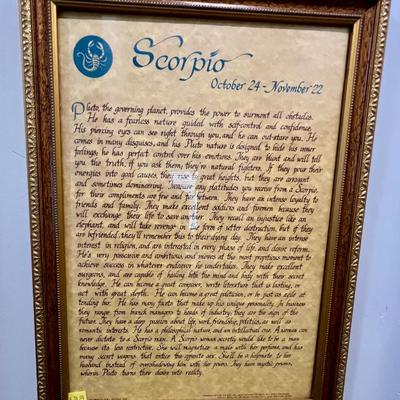 Scorpio
October 24 - November 22
Pluto, the governing planet, provides the power to surmount all obstacles.
He has a fearless nature guided with self-control and confidence.
His piercing eyes can see right through you, and he can out-stare you. He
comes in many disguises, and his Pluto nature is designed to hide his inner
feelings; he has perfect control over his emotions. They are blunt and will tell
you the truth, if you ask them; they're natural fighters. If they pour their
energies into good causes, they rise to great heights, but they are arrogant
and sometimes domineering. Treasure any platitudes you receive from a Scorpio,
for their compliments are few and far between. They have an intense loyalty to
friends and family. They make excellent soldiers and firemen because they
will exchange their life to save another. They recall an injustice like an
elephant, and will take revenge in the form of utter destruction, but if they
are befriended, they'll remember this to their dying day. They have an intense
interest in religion, and are interested in every phase of life, and desire reforms.
He's very possessive and ambitious, and moves at the most propitious moment to
achieve success in whatever endeavor he undertakes. They make excellent
surgeons, and are capable of healing both the mind and body with their secret
knowledge. He can become a great composer, write literature that is lasting, or
act with great depth. He can become a great politician, or be just as exile at
tending bar. He has many facets that make up his unique personality. In business
they range from branch managers to heads of industry; they are the sign of the
future. They have a deep passion about life, work, friendship, politics, as well as
romantic interests. He has a philosophical nature and an intellectual one. A woman can
never dictate to a Scorpio man. A Scorpio woman secretly would like to be a man
because its less restrictive. She will magnetize a male with her perfume, and has
many secret weapons that entice the opposite sex. She'll be a helpmate to her
husband, instead of overshadowing him with her prowess. They have mystic powers,
wherein Pluto turns their desires into reality.